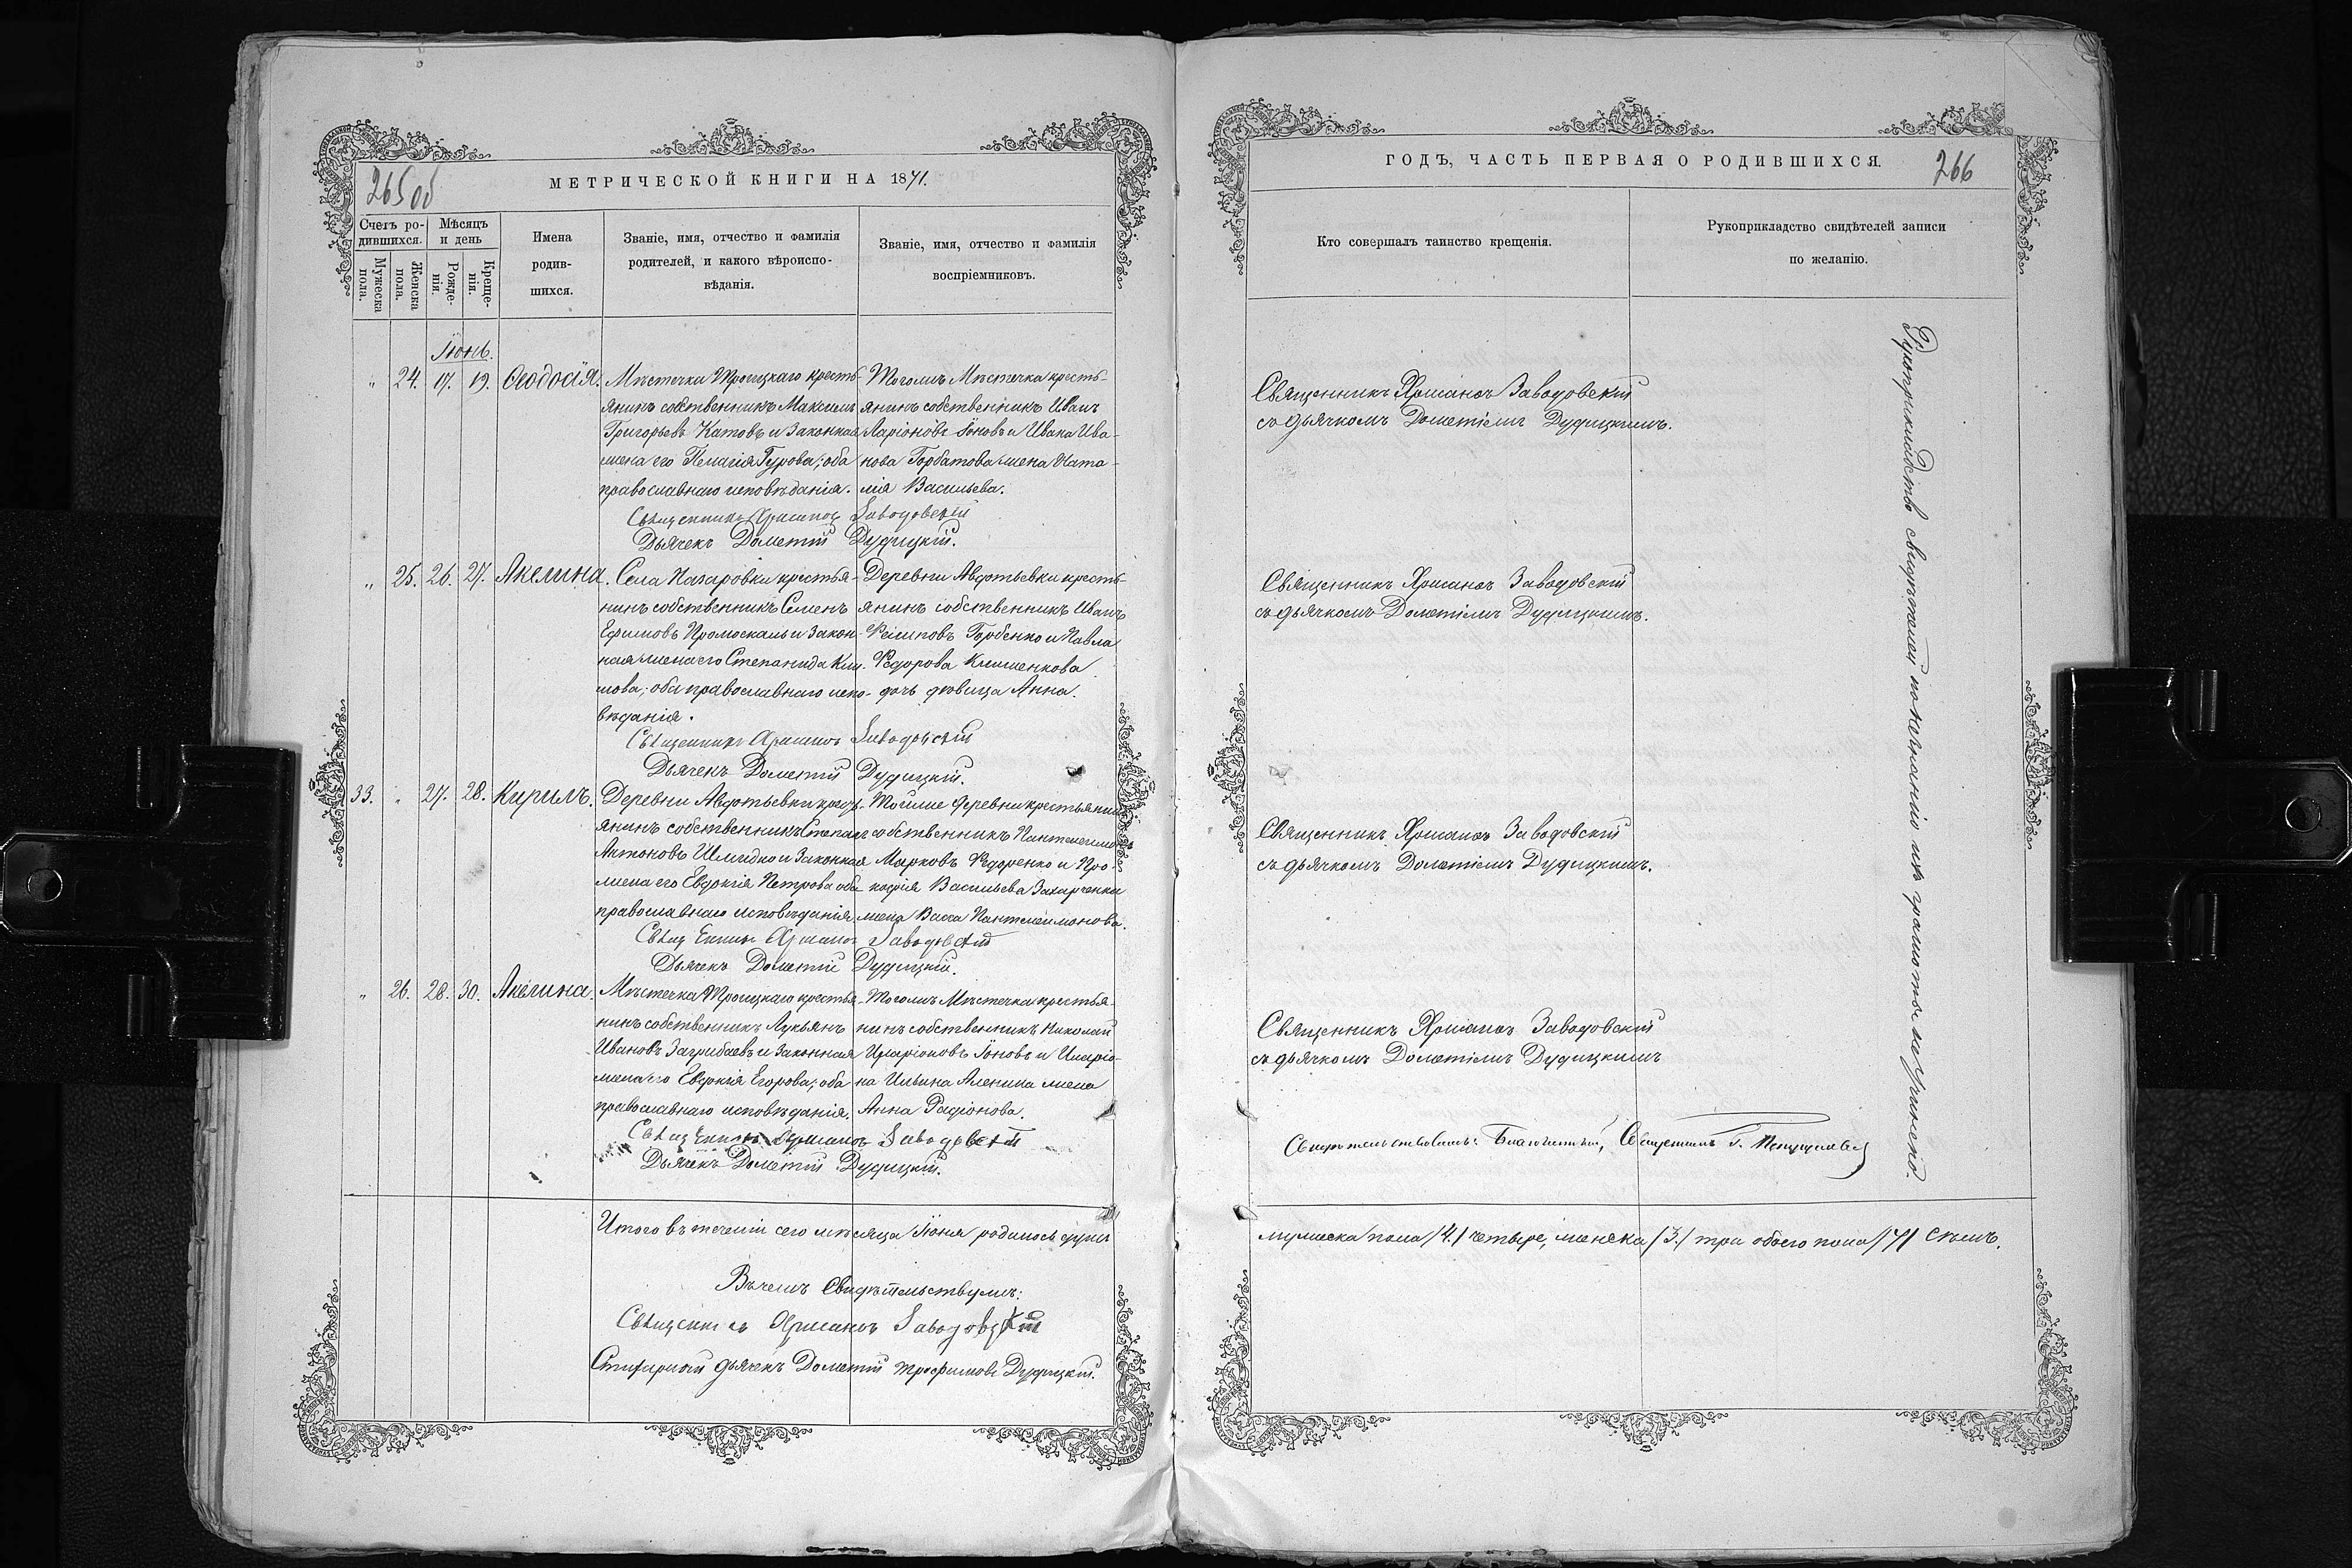 265 об
МЕТРИЧЕСКОЙ КНИГИ НА 1871.
Счетъ ро-
дившихся.
Мѣсяцъ
и день
Мужеска
пола.
Женска
пола.
Рожде-
нія.
Креще-
нія.
Имена
родив-
шихся.
Званіе, имя, отчество и фамилія
родителей, и какого вѣроиспо-
вѣданія.
Званіе, имя, отчество и фамилія
воспріемниковъ.
Іюнь.
„ 24. 17. 19. Ѳеодосія.
Мѣстечка Троицкаго кресть-
янинъ собственникъ Максимъ
Григорьевъ Катовъ и Законная
жена его Пелагія Гурова; оба
православнаго исповѣданія.
Тогожъ Мѣстечка кресть-
янинъ собственникъ Иванъ
Ларіоновъ Іоновъ и Ивана Ива-
нова Горбатова жена Ната-
лія Васильева.
Священникъ Хрисанѳъ Заводовскій
Дьячекъ Дометій Дудицкій.
„ 25. 26. 27. Акелина.
Села Назаровки крестья-
нинъ собственникъ Семенъ
Ефимовъ Промоскаль и Закон-
ная жена его Степанида Кли-
мова; оба православнаго испо-
вѣданія.
Деревни Авдотьевки кресть-
янинъ собственникъ Иванъ
Филиповъ Горбенко и Павла
Федорова Клименкова
дочь дѣвица Анна.
Священникъ Хрисанѳъ Заводовскій
Дьячекъ Дометій Дудицкій.
33. „ 27. 28. Кирилъ.
Деревни Авдотьевки крест-
янинъ собственникъ Степанъ
Антоновъ и Законная
жена его Евдокія Петрова оба
православнаго исповѣданія
Тойже деревни крестьянинъ
собственникъ Пантелеимонъ
Марковъ Федоренко и Про-
кофія Васильева Захарченка
жена Васса Пантелеимонова.
Священникъ Хрисанѳъ Заводовскій
Дьячекъ Дометій Дудицкій.
„ 26. 28. 30. Акелина.
Мѣстечка Троицкаго крестья-
нинъ собственникъ Лукьянъ
Ивановъ Загрибаевъ и Законная
жена его Евдокія Егорова; оба
православнаго исповѣданія.
Тогожъ Мѣстечка крестья-
нинъ собственникъ Николай
Иларіоновъ Іоновъ и Иларіо-
на Ильина Аленина жена
Анна Радіонова.
Священникъ Хрисанѳъ Заводовскій
Дьячекъ Дометій Дудицкій.
Итого въ теченіи сего мѣсяца Іюня родилось душъ
Въ чемъ Свидѣтельствуемъ:
Священникъ Хрисанѳъ Заводовскій
Стихарный дьячекъ Дометій Трофимовъ Дудицкій.
ГОДЪ, ЧАСТЬ ПЕРВАЯ О РОДИВШИХСЯ.
266
Кто совершалъ таинство крещенія.
Рукоприкладство свидѣтелей записи
по желанію.
Священникъ Хрисанѳъ Заводовскій
съ дьячкомъ Дометіемъ Дудицкимъ.
Священникъ Хрисанѳъ Заводовскій
съ дьячкомъ Дометіемъ Дудицкимъ.
Священникъ Хрисанѳъ Заводовскій
съ дьячкомъ Дометіемъ Дудицкимъ.
Священникъ Хрисанѳъ Заводовскій
съ дьячкомъ Дометіемъ Дудицкимъ
Рукоприкладство свидѣтелей по незнанію ихъ грамоты не учинено.
Свидѣтельствовалъ: Благочинный, Священникъ Г.
мужеска пола /4./ четыре, женска /3./ три обоего пола /7/ семь.